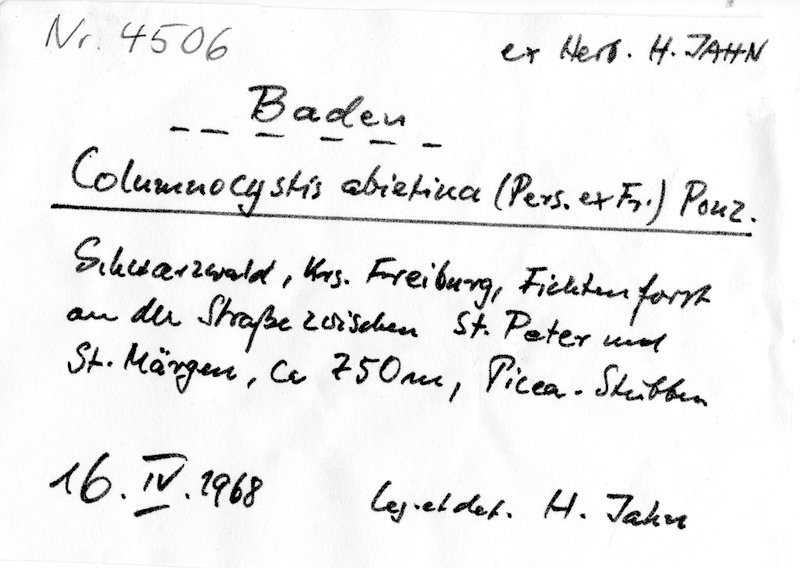 Nr. 4506
ex Herb. H. JAHN
Baden
Columnocystis abietina (Pers. ex Fr.) Pouz.
Schwarzwald, Krs. Freiburg, Fichtenforst
an der Straße zwischen St. Peter und
St. Märgen, ca 750m, Picea-Stubben
16. IV. 1968
leg. et det. H. Jahn